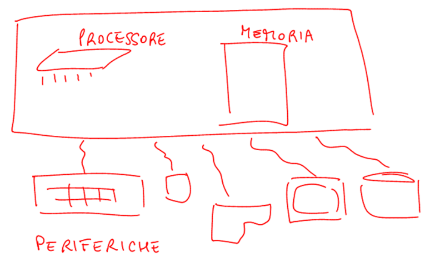 PROCESSORE
MEMORIA
PERIFERICHE